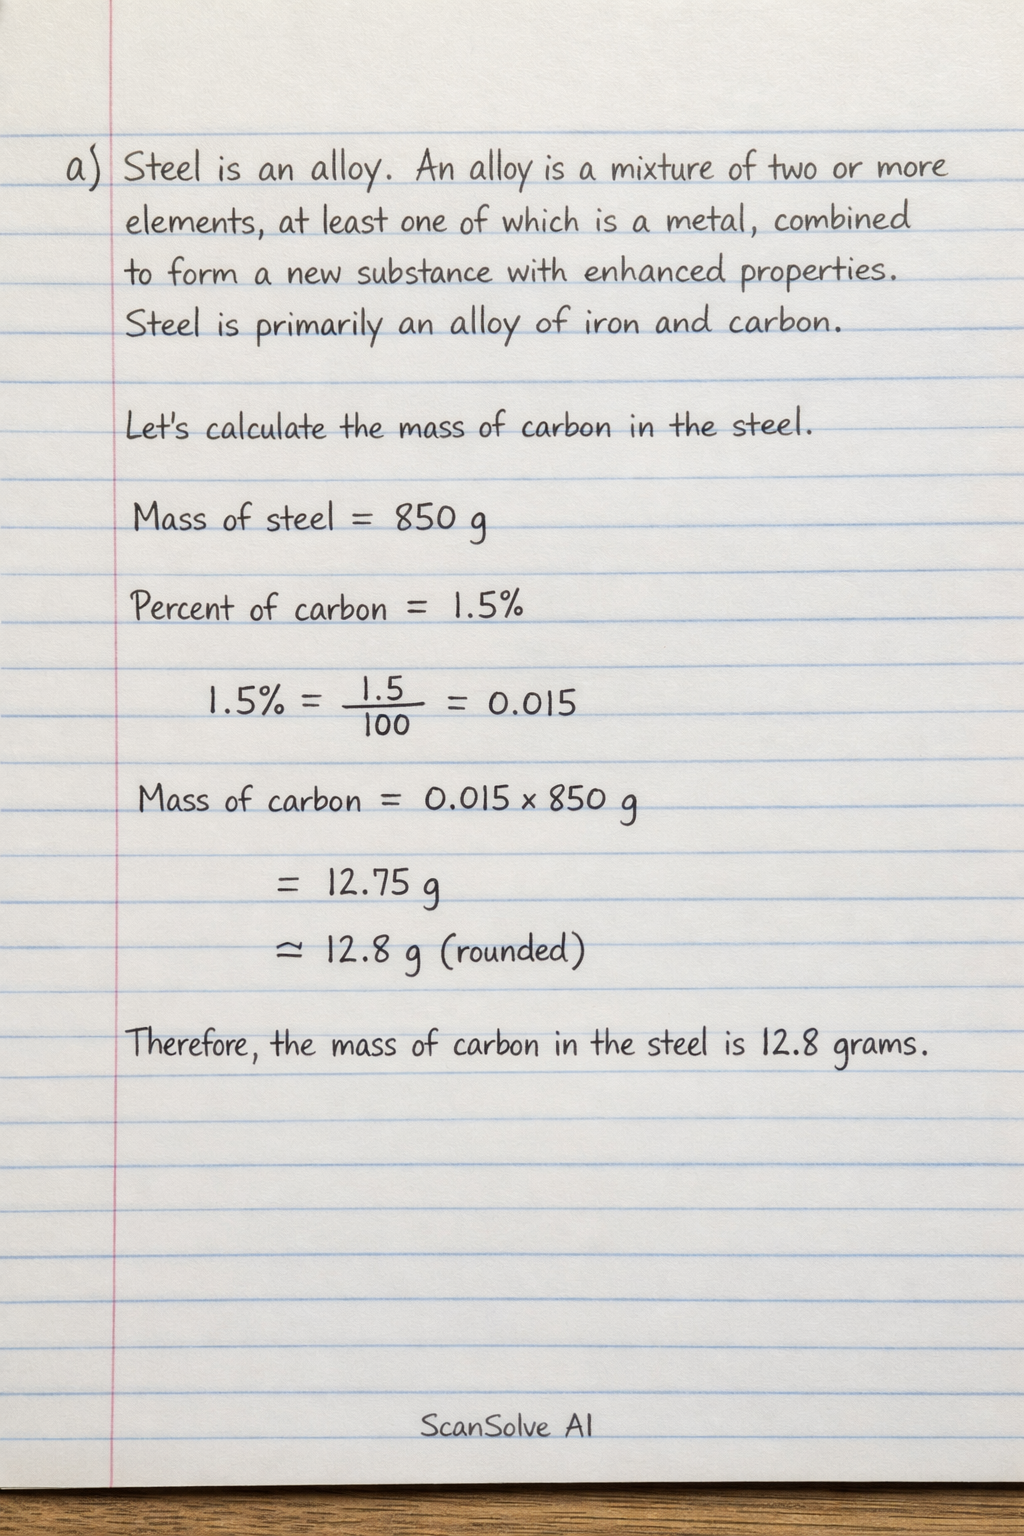 a) Steel is an alloy. An alloy is a mixture of two or more
elements, at least one of which is a metal, combined
to form a new substance with enhanced properties.
Steel is primarily an alloy of iron and carbon.
Let's calculate the mass of carbon in the steel.
Mass of steel = 850 g
Percent of carbon = 1.5%
1.5% = 1.5/100 = 0.015
Mass of carbon = 0.015 x 850 g
= 12.75 g
≃ 12.8 g (rounded)
Therefore, the mass of carbon in the steel is 12.8 grams.
ScanSolve AI